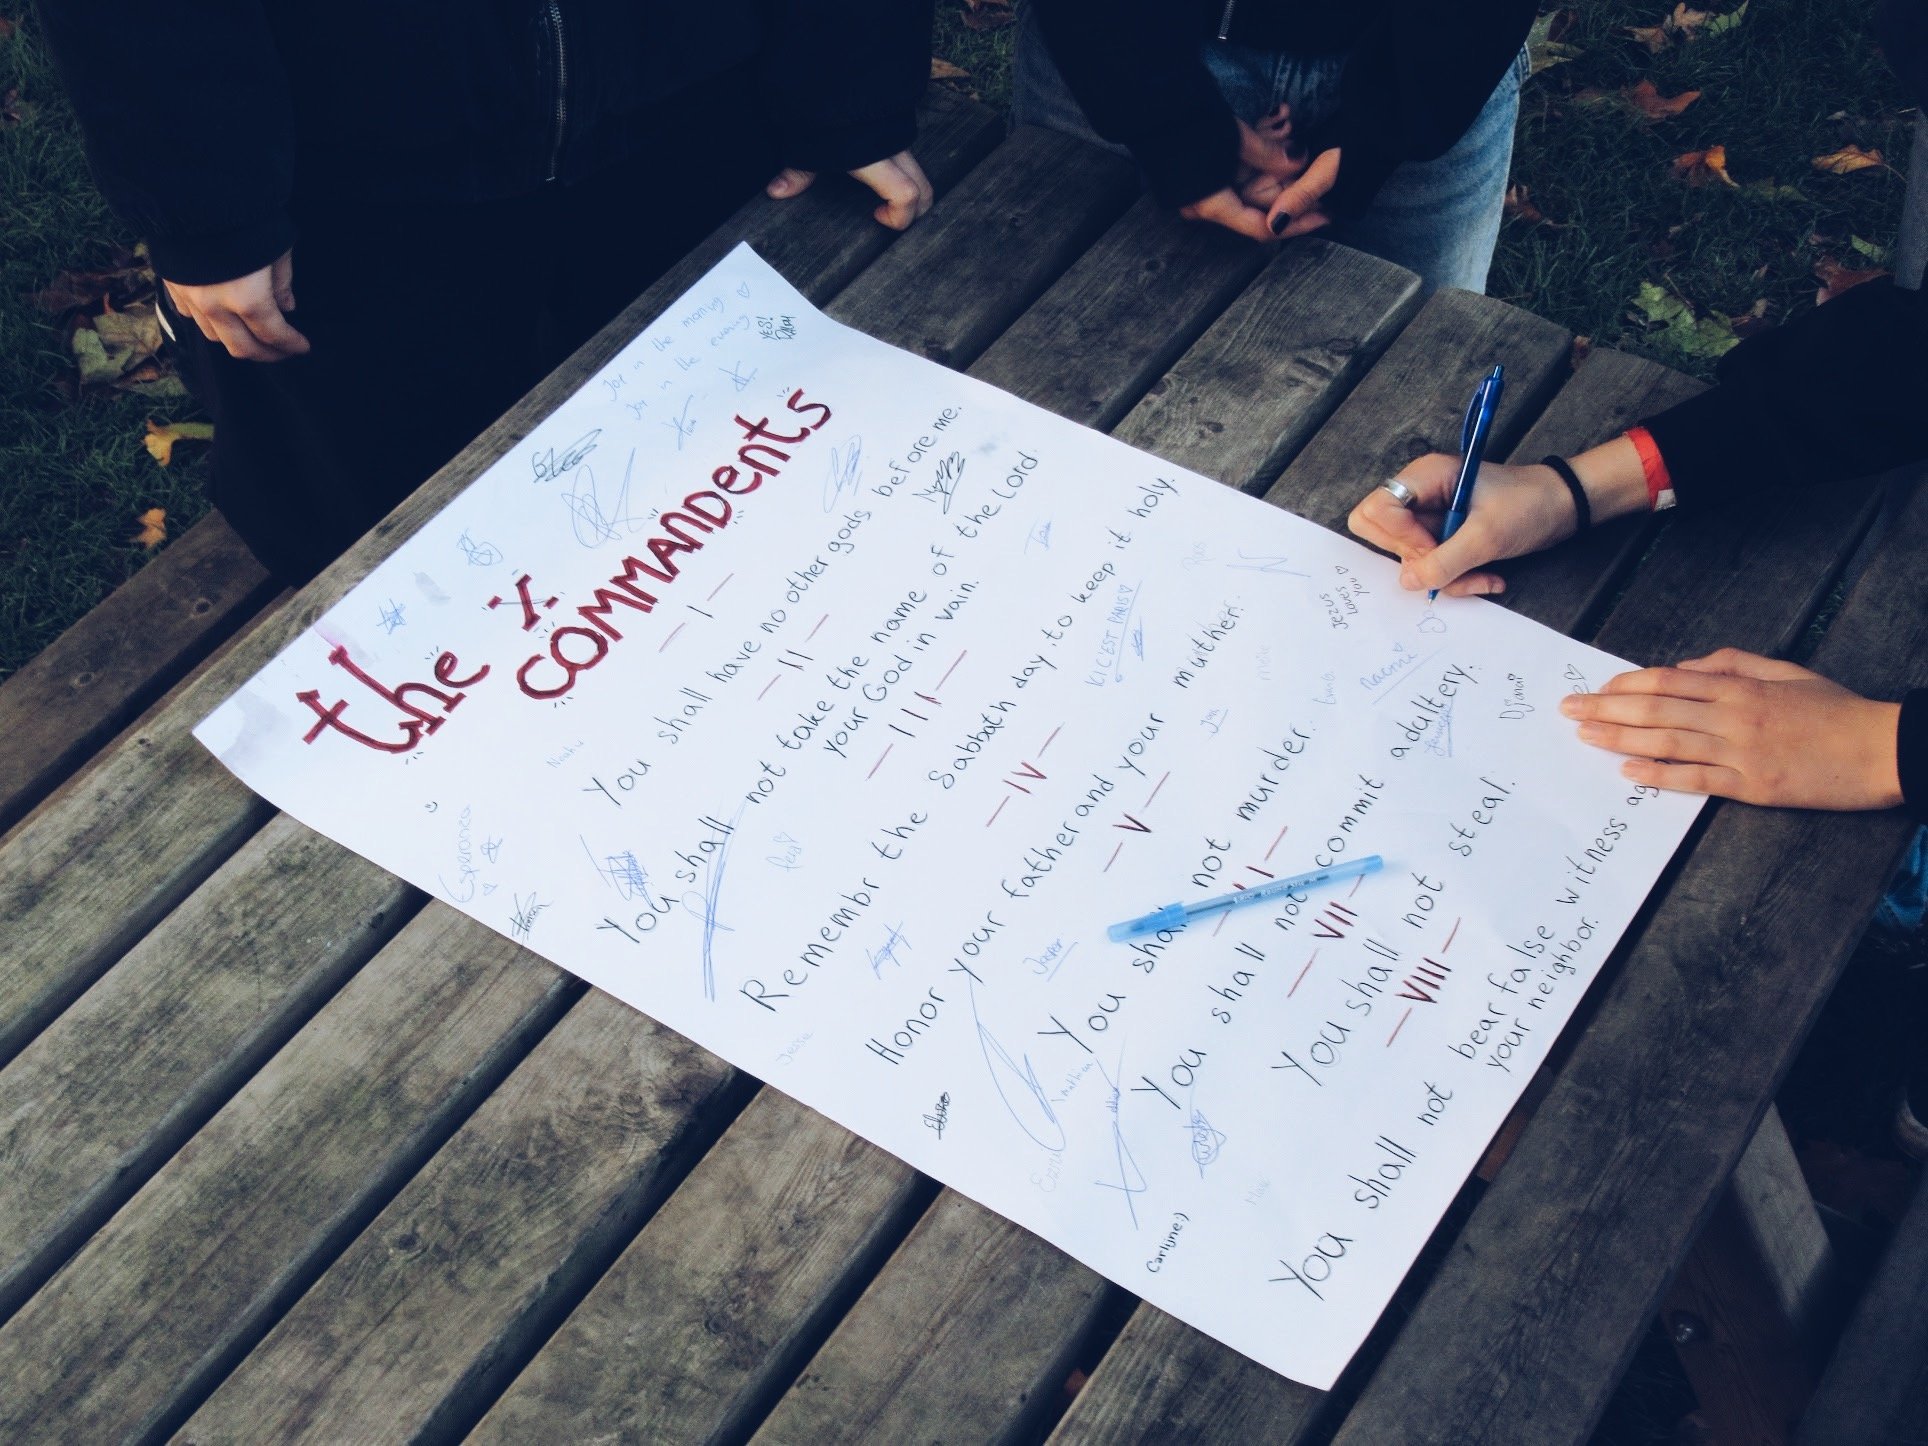 Joy in the morning
Joy in the evening
YES!
Tom
the
COMMANDents
I
You shall have no other gods before me.
II
You shall not take the name of the Lord
your God in vain.
III
Remembr the Sabbath day, to keep it holy.
IV
Honor your father and your muther.
V
You shall not murder.
You shall not commit adultery.
VII
You shall not steal.
VIII
You shall not bear false witness ag
your neighbor.
Esperanca
ICI C'EST PARIS
Jezus
Loves
You
Naomi
Djanai
Jan
Jasper
Jesse
Carlijne:)